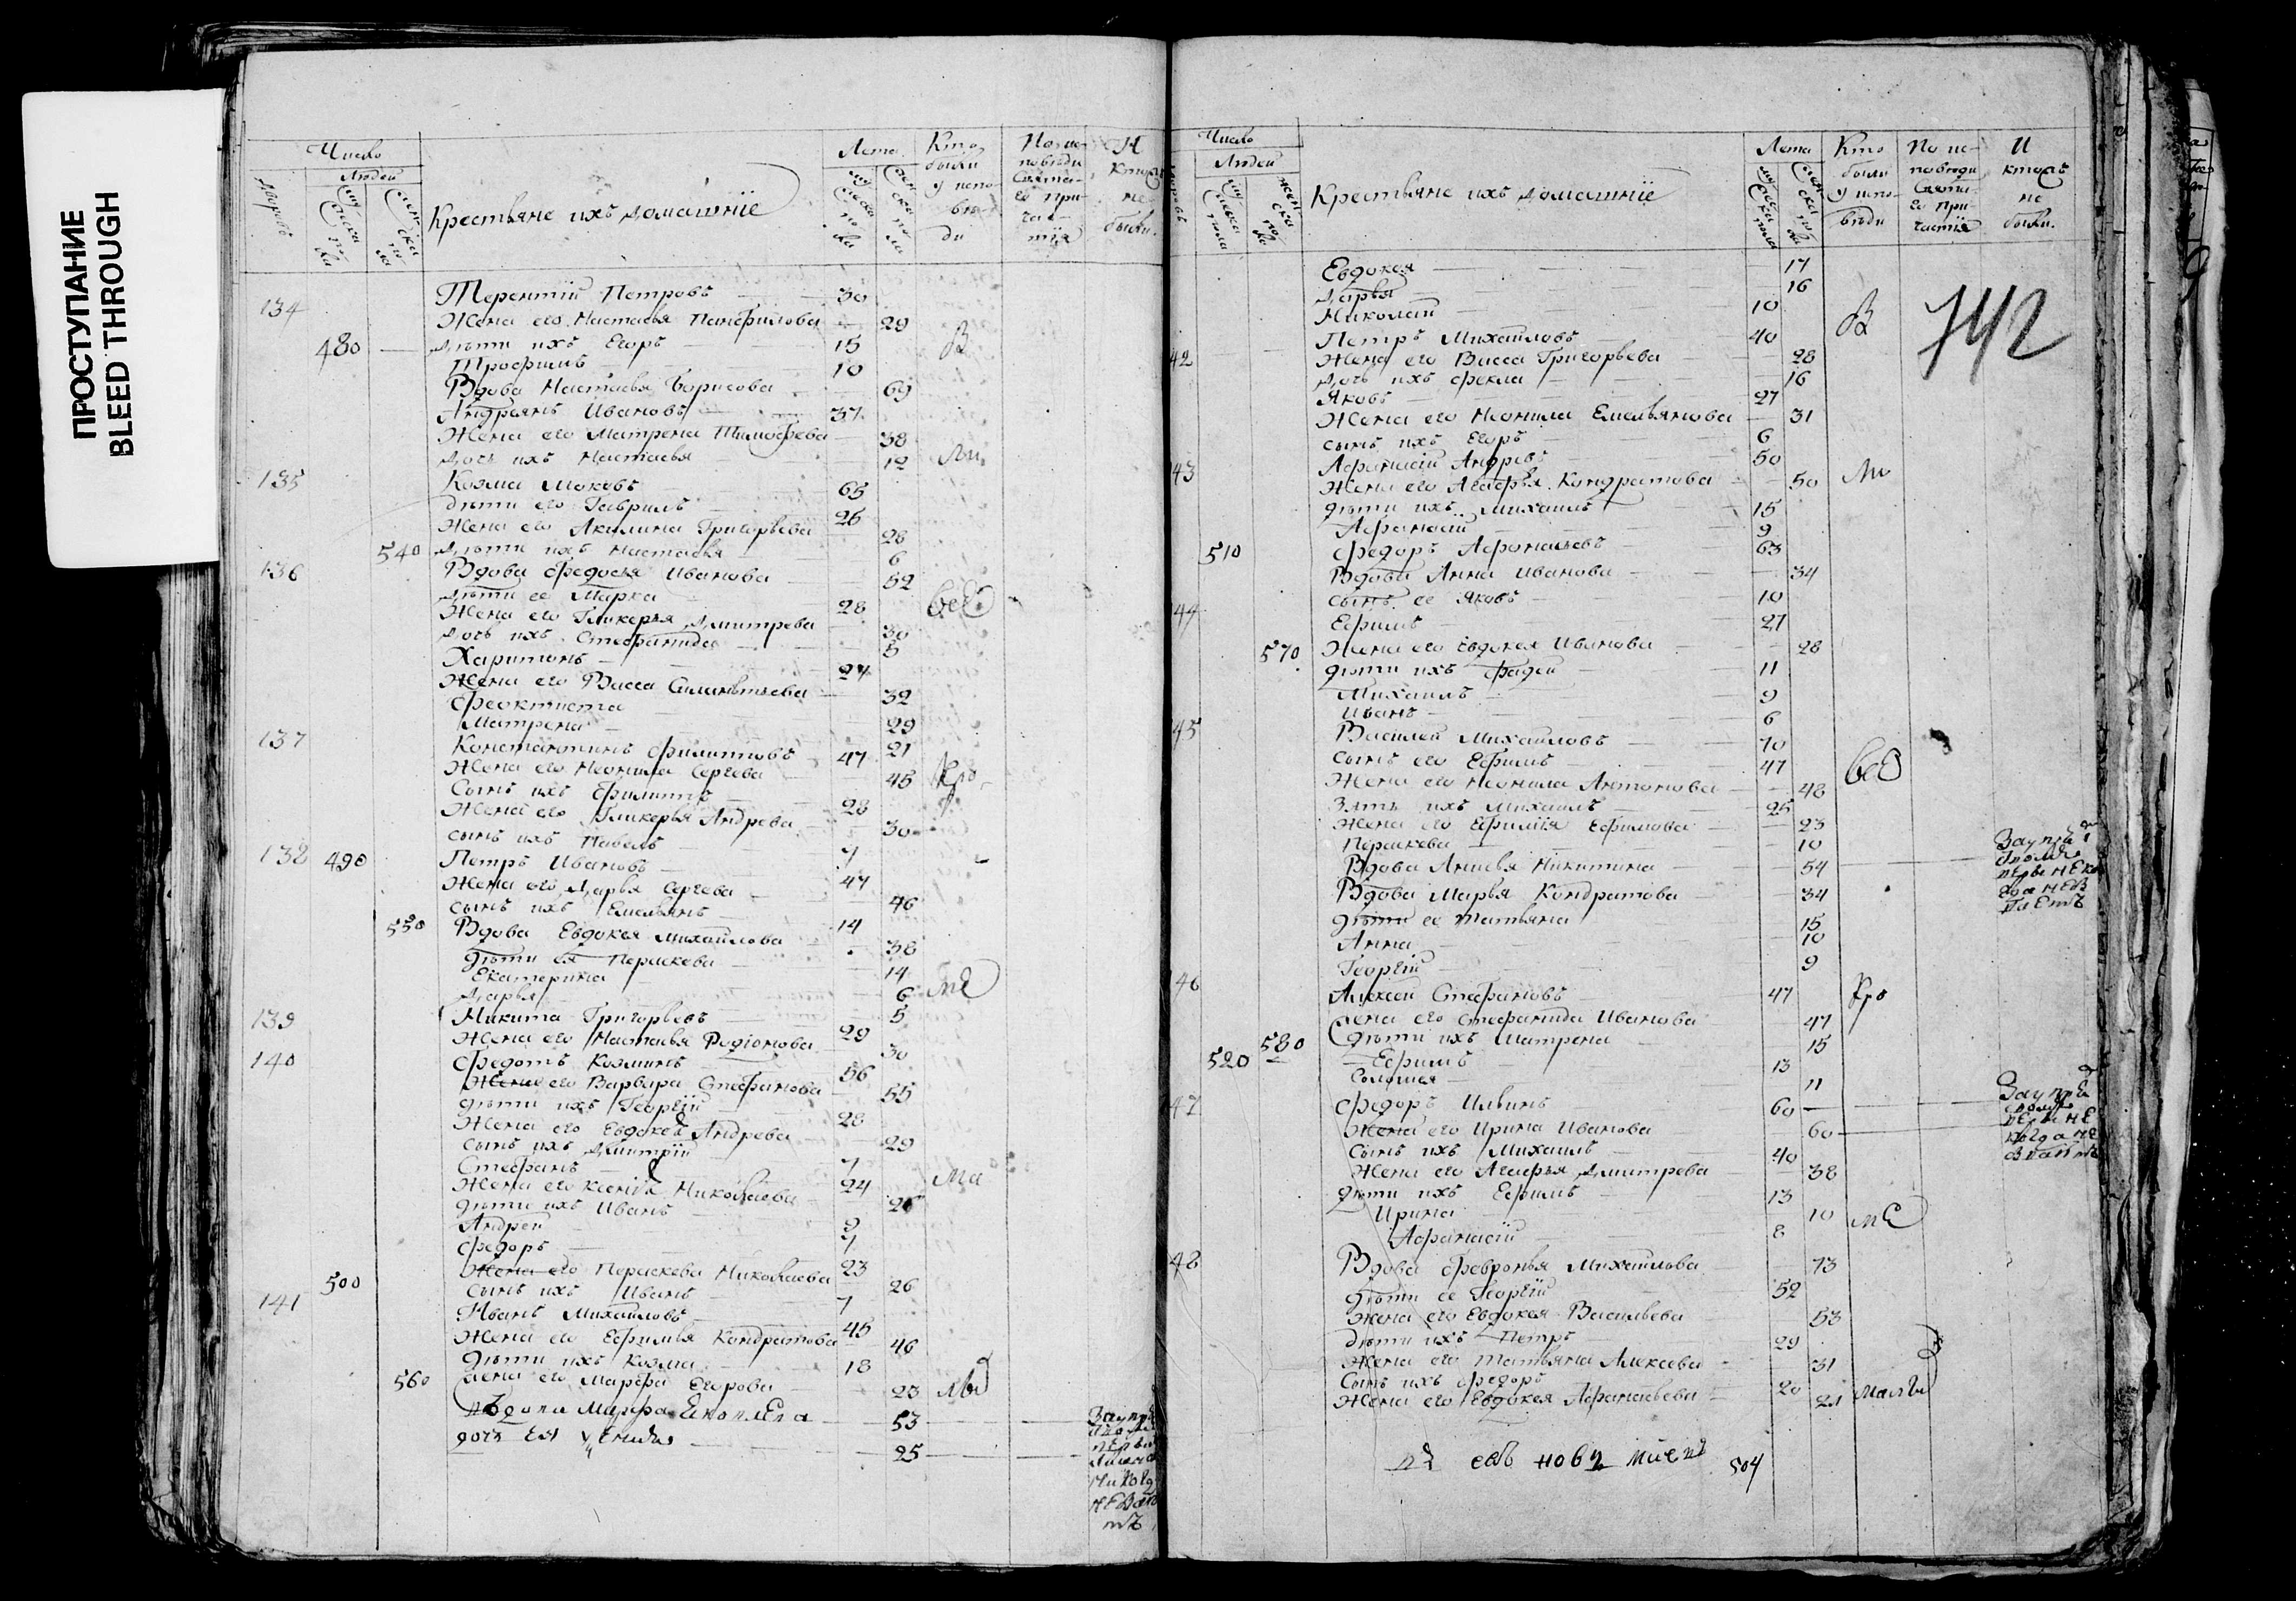 ПРОСТУПАНИЕ
BLEED THROUGH
Число
Людей
Крестьяне ихъ домашнїе
Лета
Кто были у испо- вѣди
По ис- повѣди Святы- го При- час- тїя
И ктожъ не были.
134 Терентїй Петровъ 30
Жена его Настасья Панфилова 29
480 дѣти ихъ Егоръ 15
Трофимъ 10
Вдова Настасья Борисова 69
Андрьянъ Ивановъ 37
Жена его Матрена Тимофѣева 38
дочь ихъ Настасья 12
135 Козма 65
дѣти его Гаврилъ 26
Жена его Акилина Григорьева 28
540 дѣти ихъ Настасья 6
136 Вдова Федосья Иванова 52
дѣти ее Марка 28
Жена его Гликерья Дмитрева 30
дочь ихъ Стефанида 5
Харитонъ 24
Жена его Васса 32
Феоктиста 29
Матрена 21
137 Константинъ Филиповъ 47
Жена его Неонила Сергева 45
Сынъ ихъ Филиппъ 28
Жена его Гликерья Андрева 30
сынъ ихъ Павелъ 7
138 490 Петръ Ивановъ 47
Жена его Дарья Сергева 46
сынъ ихъ Емельянъ 14
550 Вдова Евдокея Михайлова 38
дѣти ея Пераскева 14
Екатерина 6
Дарья 5
139 Никита Григорьевъ 29
Жена его Настасья Родїонова 30
140 Федотъ Козминъ 56
Жена его Варвара Стефанова 55
дѣти ихъ Георгїй 28
Жена его Евдокея Андрева 29
сынъ ихъ Дмитрїй 7
Стефанъ 24
Жена его Ксенїя Николаева 26
дѣти ихъ Иванъ 9
Андрей 7
Федоръ 23
500 Жена его Пераскева Николаева 26
сынъ ихъ Иванъ 7
141 Иванъ Михайловъ 45
Жена его Ефимья Кондратова 46
дѣти ихъ Козма 18
560 Жена его Марфа Егорова 23
Марфа 53
дочь 25
Число
Людей
Крестьяне ихъ домашнїе
Лета
Кто были у испо- вѣди
По ис- повѣди Святы- го При- частїя
И ктожъ не были.
742
Евдокея 17
Дарья 16
Николай 10
42 Петръ Михайловъ 40
Жена его Васса Григорьева 28
дочь ихъ Фекла 16
Яковъ 27
Жена его Неонила Емельянова 31
сынъ ихъ Егоръ 6
43 Афанасїй Андревъ 50
Жена его Агафья Кондратова 50
дѣти ихъ Михаилъ 15
Афанасїй 9
510 Федоръ Афанасьевъ 63
Вдова Анна Иванова 34
сынъ ее Яковъ 10
44 Ефимъ 27
570 Жена его Евдокея Иванова 28
дѣти ихъ Фадей 11
Михаилъ 9
Иванъ 6
45 Василей Михайловъ 70
сынъ его Ефимъ 47
Жена его Неонила Антонова 48
Зять ихъ Михаилъ 25
Жена его Ефимїя Ефимова 23
Пераскева 10
Вдова Анисья Никитина 54
Вдова Марья Кондратова 34
дѣти ее Татьяна 15
Анна 10
Георгїй 9
46 Алексей Стефановъ 47
Жена его Стефанида Иванова 47
580 дѣти ихъ Матрена 15
520 Ефимъ 13
Соломея 11
47 Федоръ Ильинъ 60
Жена его Ирина Иванова 60
сынъ ихъ Михаилъ 40
Жена его Агафья Дмитрева 38
дѣти ихъ Ефимъ 13
Ирина 10
Афанасїй 8
48 Вдова Февронья Михайлова 73
дѣти ее Георгїй 52
Жена его Евдокея Васильева 53
дѣти ихъ Петръ 29
Жена его Татьяна Алексева 31
Сынъ ихъ Федоръ 20
Жена его Евдокея Афанасьева 21
504